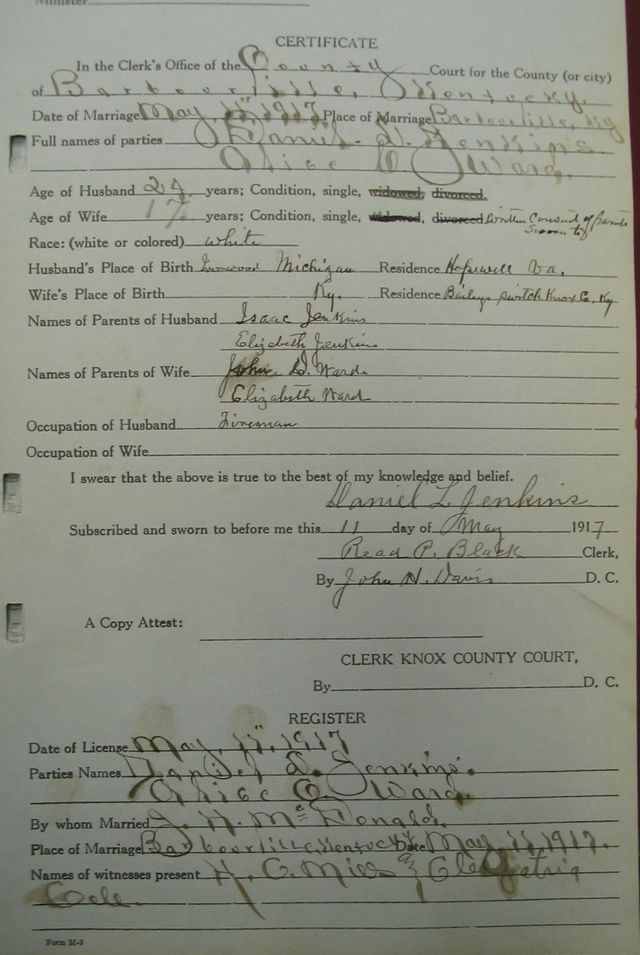 Minister
CERTIFICATE
In the Clerk's Office of the County Court for the County (or city)
of Barbourville, Kentucky.
Date of Marriage May, 11", 1917 Place of Marriage Barbourville, Ky
Full names of parties Daniel L. Jenkins
Alice O. Ward,
Age of Husband 24 years; Condition, single, widowed, divorced.
Age of Wife 17 years; Condition, single, widowed, divorced Written Consent of Parents
Sworn to
Race: (white or colored) white
Husband's Place of Birth Ironwood Michigan Residence Hopewell Va.
Wife's Place of Birth Ky. Residence Baileys Switch Knox Co, Ky
Names of Parents of Husband Isaac Jenkins
Elizabeth Jenkins
Names of Parents of Wife John D. Ward.
Elizabeth Ward
Occupation of Husband Fireman
Occupation of Wife
I swear that the above is true to the best of my knowledge and belief.
Daniel L Jenkins
Subscribed and sworn to before me this 11 day of May 1917
Read P. Black Clerk,
By John H. Davis D. C.
A Copy Attest:
CLERK KNOX COUNTY COURT,
By D. C.
REGISTER
Date of License May, 11", 1917
Parties Names Daniel L. Jenkins.
Alice O. Ward.
By whom Married J. H. McDonald,
Place of Marriage Barbourville, Kentucky Date May, 11, 1917.
Names of witnesses present H. C. Mills &
Cole.
Form M-3